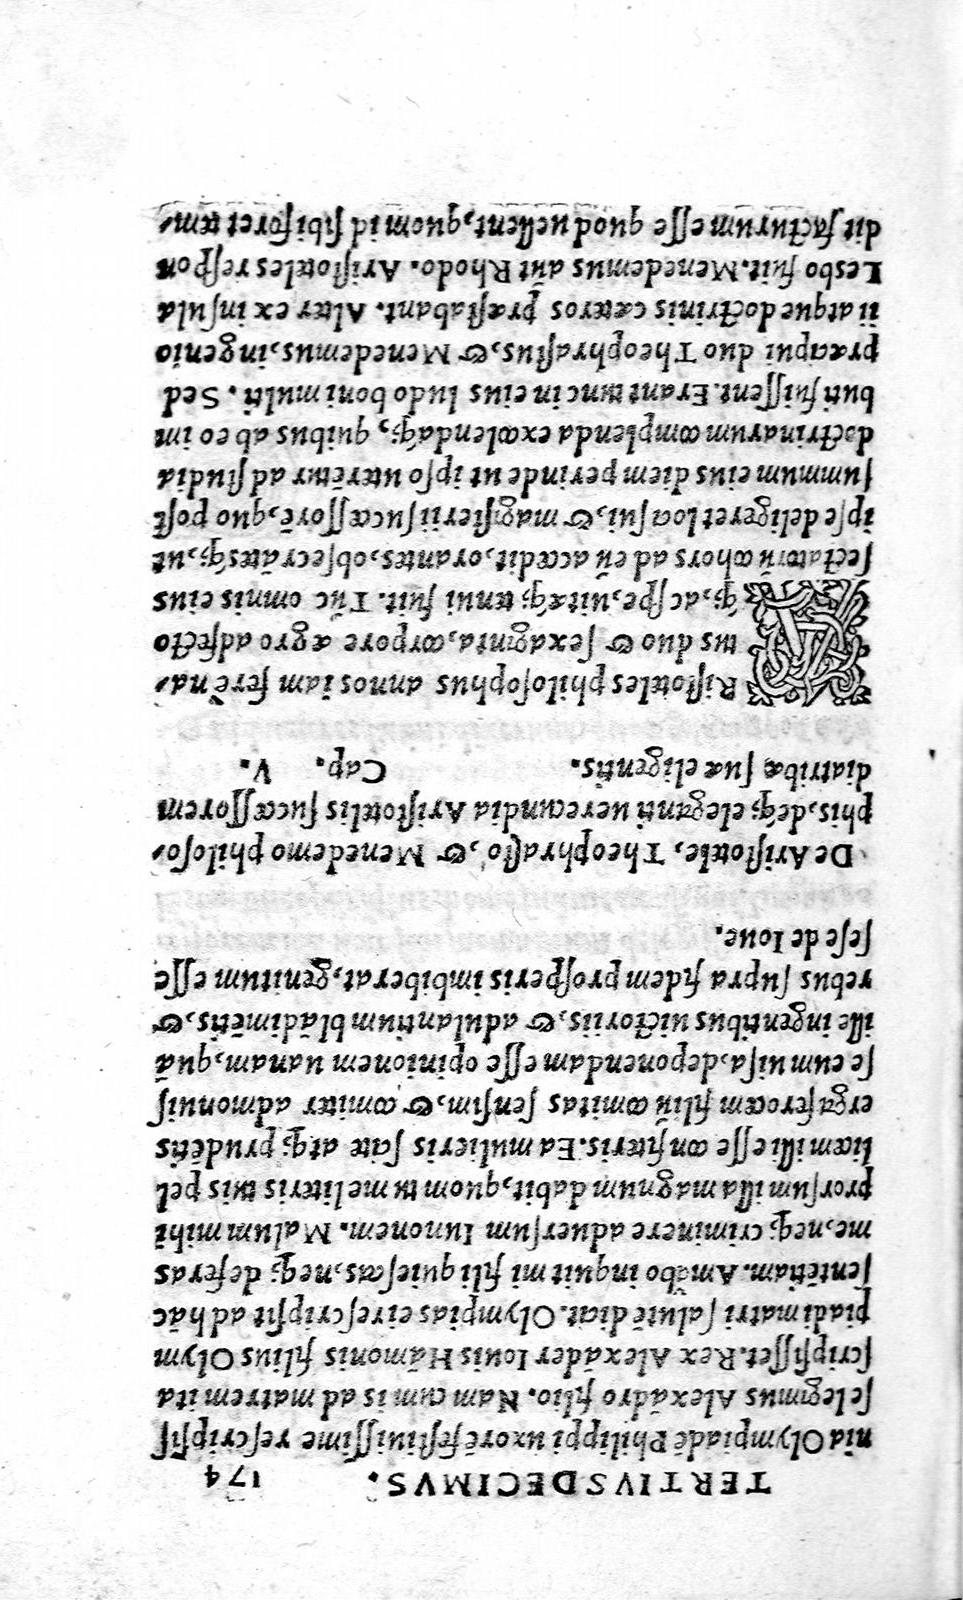 TERTIVSDECIMVS. 174
nia Olympiadē Philippi uxorē festiuissime rescripsis
se legimus Alexādro filio. Nam cum is ad matrem ita
scripsisset. Rex Alexāder Iouis Hāmonis filius Olym
piadi matri salutē dicit. Olympias ei rescripsit ad hāc
sentētiam. Amabo inquit mi fili quiescas, neq; deferas
me, neq; criminere aduersum Iunonem. Malum mihi
prorsum illa magnum dabit, quom tu me literis tuis pel
licem illi esse confiteris. Ea mulieris scite atq; prudētis
erga ferocem filiū comitas sensim, & comiter admonuis
se eum uisa, deponendam esse opinionem uanam, quā
ille ingentibus uictoriis, & adulantium blādimētis, &
rebus supra fidem prosperis imbiberat, genitum esse
sese de Ioue.
De Aristotele, Theophrasto, &, Menedemo philoso-
phis, deq́; eleganti uerecundia Aristotelis successorem
diatribæ suæ eligentis. Cap. V.
ARistoteles philosophus annos iam ferè na-
tus duo & sexaginta, corpore ægro adfecto
q́;, ac spe, uitæq́; tenui fuit. Tūc omnis eius
sectatorū cohors ad eū accedit, orantes, obsecrātesq́;, ut
ipse deligeret loci sui, &, magisterii successorē, quo post
summum eius diem perinde ut ipso uterētur ad studia
doctrinarum complenda excolendaq́;, quibus ab eo im
buti fuissent. Erant tunc in eius ludo boni multi. Sed
præcipui duo Theophrastus, & Menedemus, ingenio
ii atque doctrinis cæteros præstabant. Alter ex insula
Lesbo fuit. Menedemus aūt Rhodo. Aristoteles respon
dit facturum esse quod uellent, quom id sibi foret tem-